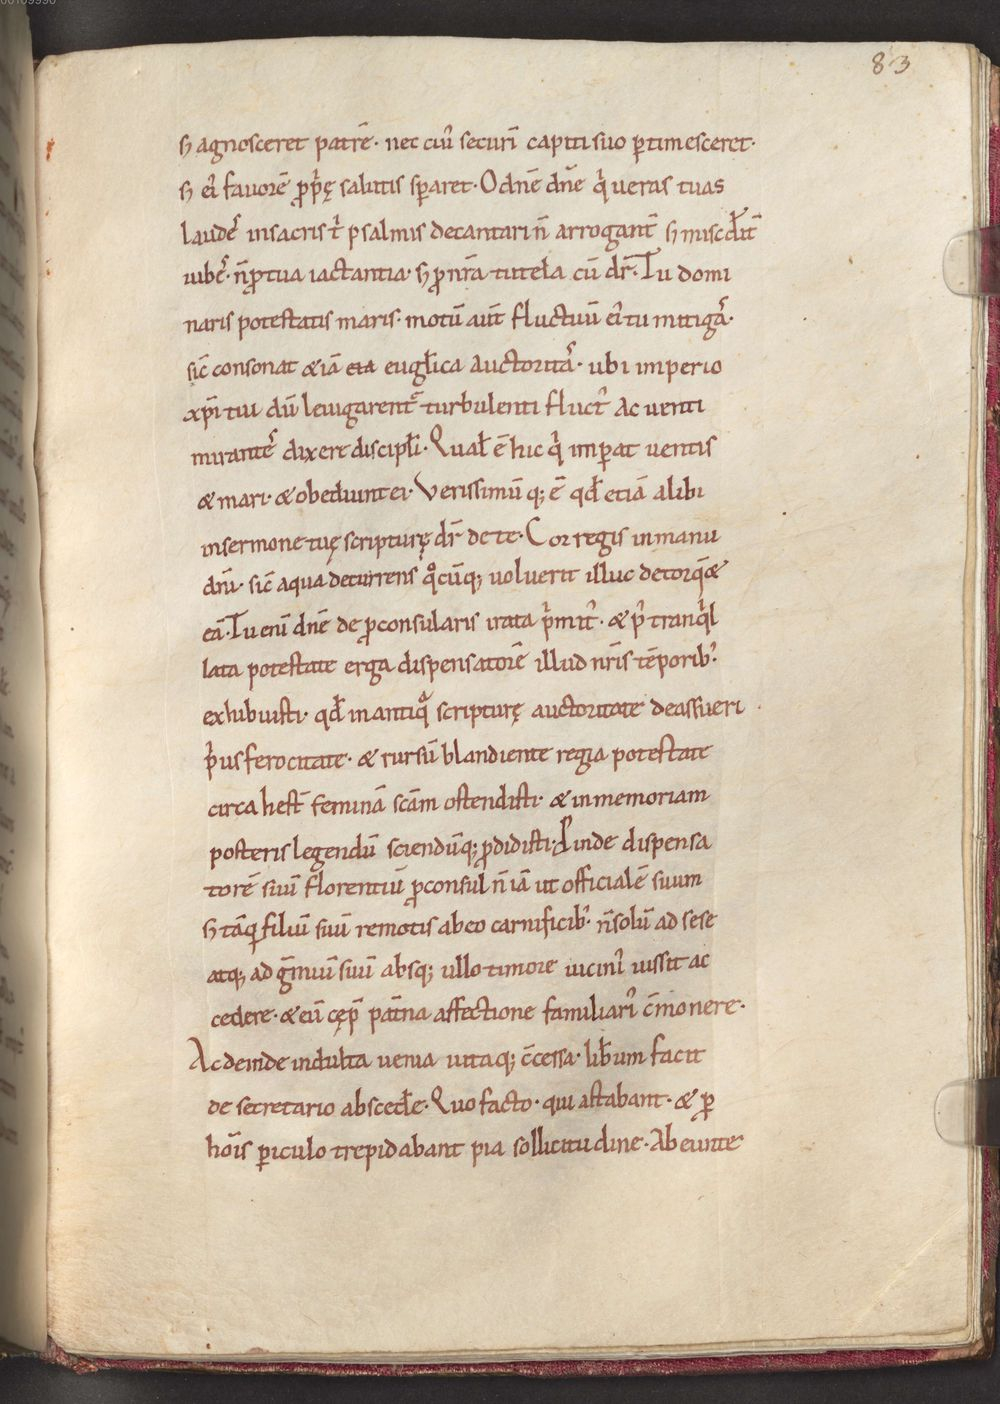 00109990
83
ꜱ agnosceret patrē· nec ciuˀ securī capiti suo ꝑtimesceret·
ꜱ eiˀ fauorē ꝓp̄ę salutis sꝑaret· O dn̄e dn̄e qͥ ueras tuas
laudeſ in sacris tͥ psalmis decantari n̄ arrogant̄ ꜱ misc̄dit̄
iubeſ· n̄ ꝓ tua iactantia· ꜱ ꝓ nr̄a tutela cū dr̄· Tu domi
naris potestatis maris· motū aūt fluctuū eiˀ tu mitigaſ·
sic̄ consonat & iā eu̅gl̄ica auctoritaſ· ubi imperio
xp̄i tui dū leuigarent᷑ turbulenti fluctˀ ac uenti
mirantеſ dixer̄ discipl̄i· Qual̄ ē hic qͥ imꝑat uentis
& mari· & obediunt ei· Verissimū q; ē qd̄ etiā alibi
in sermone tuę scripturę dr̄ de te· Cor regis in manu
dn̄i· sic̄ aqua decurrens qͦcūq; uoluerit illuc detorq̄&
eā· Tu eni dn̄e de ꝓconsularis irata pͥmitˀ· & pˀ tranqͥl
lata potestate erga dispensatorē illud nr̄is tēporibˀ·
exhibuisti· qd̄ in antiqͣ scripturę auctoritate de assueri
pͥus ferocitate· & rursū blandiente regia potestate
circa hest̄ feminā sc̄am ostendisti· & in memoriam
posteris legendū sciendūq; ꝓdidisti· Ꝓinde dispensa
torē suū florentiū ꝓconsul n̄ iā ut officialē suum
ꜱ tāꝗ filiū suū remotis ab eo carnificibˀ· n̄ solū ad sese
atq; ad gͬmiū suū absq; ullo timore uiciniˀ iussit ac
cedere· & eū cępͭ pat̄na affectione familiariˀ c̄monere·
Ac deinde indulta uenia uitaq; c̄cessa· lib̄um facit
de secretario absced̄e· Quo facto· qui astabant· & ꝓ
hoīs ꝑiculo trepidabant pia sollicitudine· Abeunte